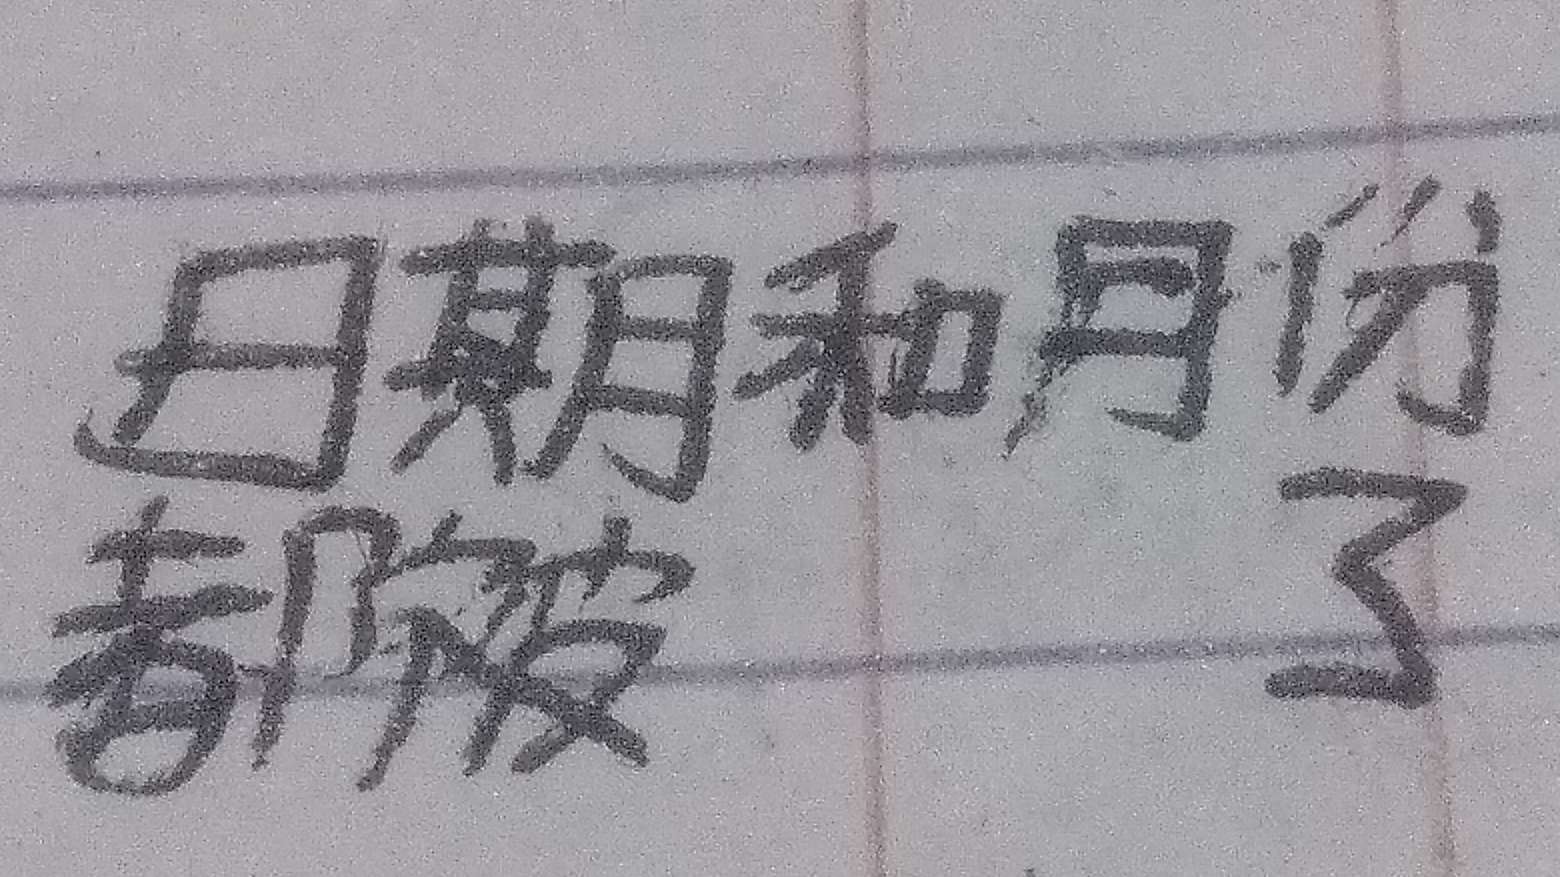 日期和月份
都被 了